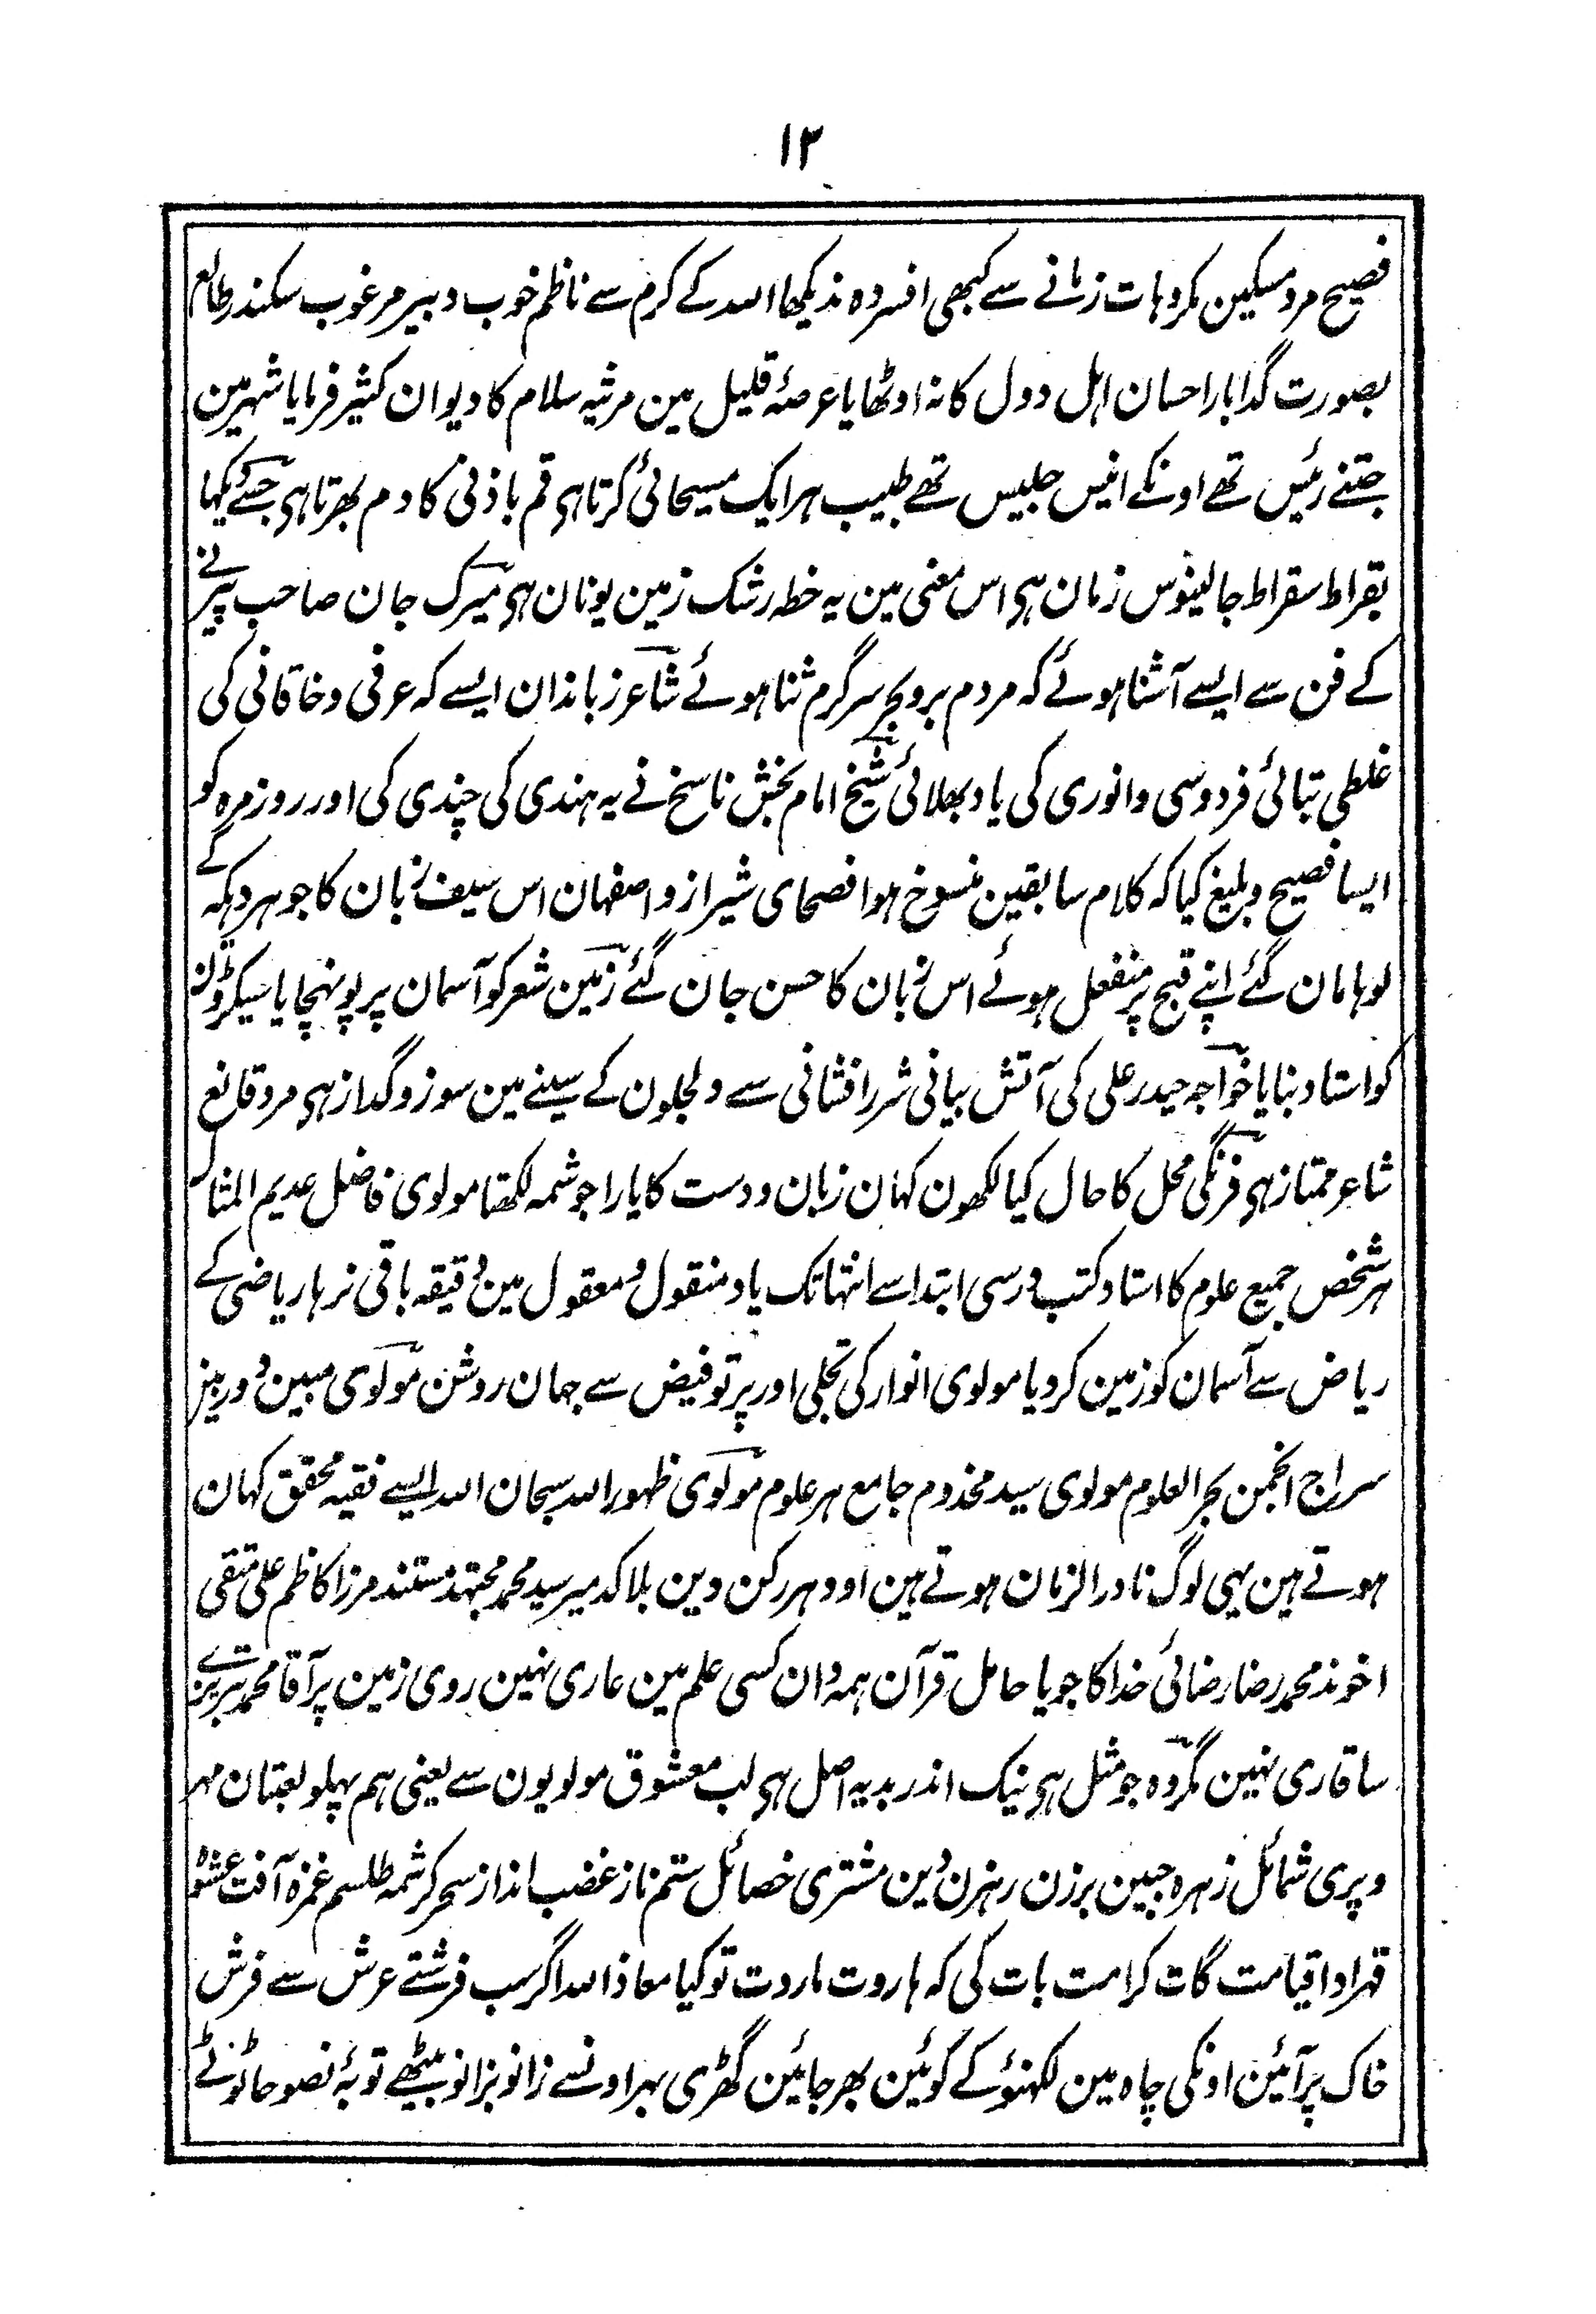 ۱۲
فصیح مرد مسکین مکروہات زمانے سے کبھی افسردہ ندیکھا اللہ کے کرم سے ناظم خوب دبیر مرغوب سکندر طالع
بصورت گدا بار احسان اہل دول کا نہ اوٹھایا عرصۂ قلیل مین مرثیہ سلام کا دیوان کثیر فرمایا شہر مین
جتنے رئیس تھے اونکے انیس جلیس تھے طبیب ہر ایک مسیحائی کرتا ہی قم باذنی کا دم بھرتا ہی جسے دیکہا
بقراط سقراط جالینوس زمان ہی اس معنی مین یہ خطہ رشک زمین یونان ہی میرک جان صاحب پیرنے
کے فن سے ایسے آشنا ہوئے کہ مردم بر و بحر سرگرم ثنا ہوئے شاعر زباندان ایسے کہ عرفی و خاقانی کی
غلطی بتائی فردوسی و انوری کی یاد بھلائی شیخ امام بخش ناسخ نے یہ ہندی کی چندی کی اور روزمرہ کو
ایسا فصیح و بلیغ کیا کہ کلام سابقین منسوخ ہوا فصحای شیراز و اصفہان اس سیف زبان کا جوہر دیکہ کے
لوہا مان گئے اپنے قبح پر منفعل ہوئے اس زبان کا حسن جان گئے زمین شعر کو آسمان پر پونہچایا سیکڑون
کو استاد بنایا خواجہ حیدر علی کی آتش بیانی شرر افشانی سے دلجلون کے سینے مین سوز و گداز ہی مرد قانع
شاعر ممتاز ہی فرنگی محل کا حال کیا لکھون کہان زبان و دست کا یارا جو شمہ لکھتا مولوی فاضل عدیم المثال
ہر شخص جمیع علوم کا استاد کتب درسی ابتدا سے انتہا تک یاد منقول و معقول مین دقیقہ باقی نرہا ریاضی کے
ریاض سے آسمان کو زمین کر دیا مولوی انوار کی تجلی اور پرتو فیض سے جہان روشن مولوی مبین دوربین
سراج انجمن بحر العلوم مولوی سید مخدوم جامع ہر علوم مولوی ظہور اللہ سبحان اللہ ایسے فقیہ محقق کہان
ہوتے ہین یہی لوگ نادر الزمان ہوتے ہین اودہر رکن دین بلا کد میر سید محمد مجتہد مستند مرزا کاظم علی متقی
اخوند محمد رضا رضائی خدا کا جویا حامل قرآن ہمہ دان کسی علم مین عاری نہین روی زمین پر آقا محمد تبریزے
سا قاری نہین مگر وہ جو مثل ہی نیک اندر بدیہ اصل ہی لب معشوق مولویون سے یعنی ہم پہلو لعبتان مہر
و پری شمائل زہرہ جبین برزن رہزن دین مشتری خصائل ستم ناز غضب انداز سحر کرشمہ طلسم غمزہ آفت عشوہ
قہر ادا قیامت گات کرامت بات کی کہ ہاروت ماروت تو کیا معاذ اللہ اگر سب فرشتے عرش سے فرش
خاک پر آئین اونکی چاہ مین لکہنؤ کے کوئین بھر جائین گھڑی بہر اونسے زانو بزانو بیٹھے توبۂ نصوحا ٹوٹے